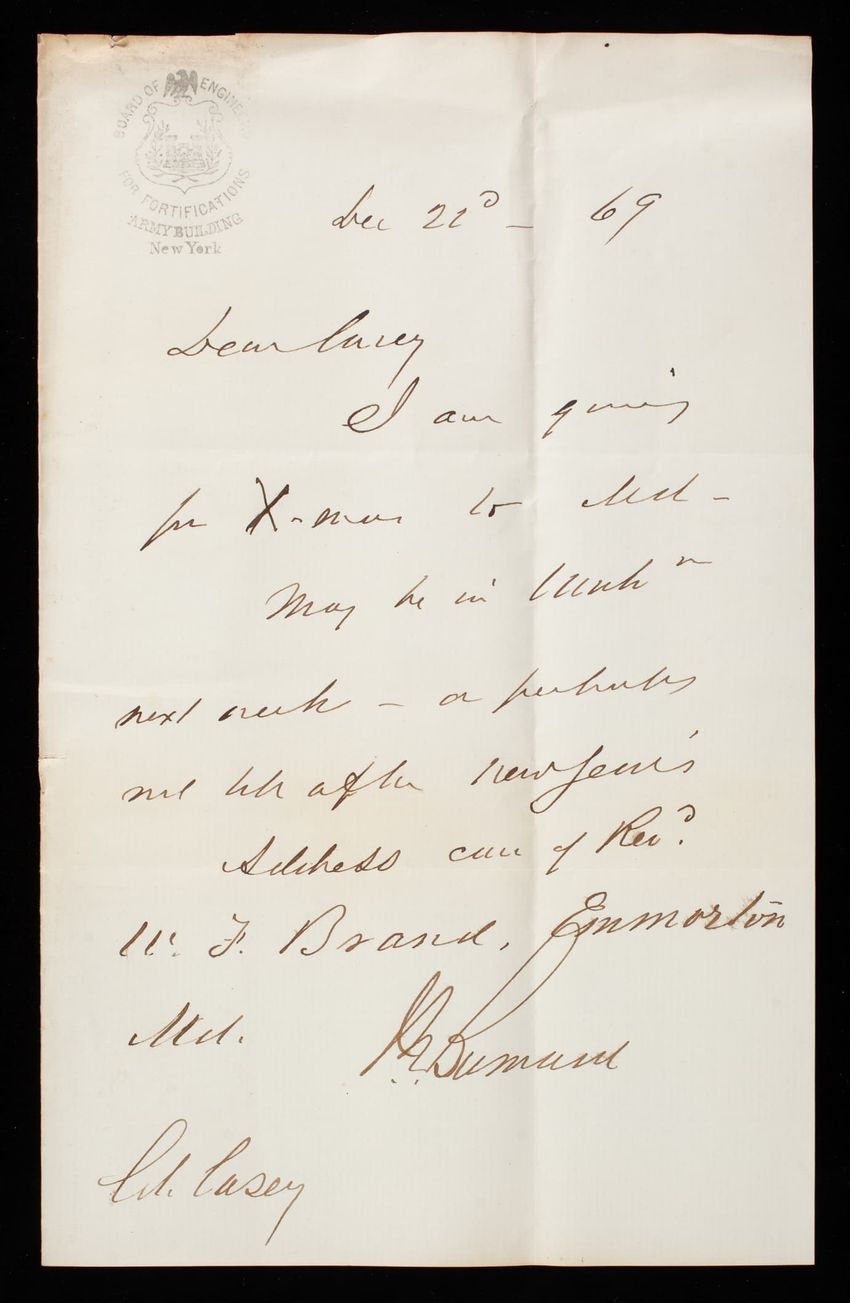 BOARD OF ENGINEERS
FOR FORTIFICATIONS
ARMY BUILDING
New York
Dec 22d - 69
Dear Casey
I am going
for X-mas to Md -
May be in Wash n
next week - or perhaps
not till after New Year's
Address care of Revd.
W. F. Brand, Emmorton
Md.
Col. Casey